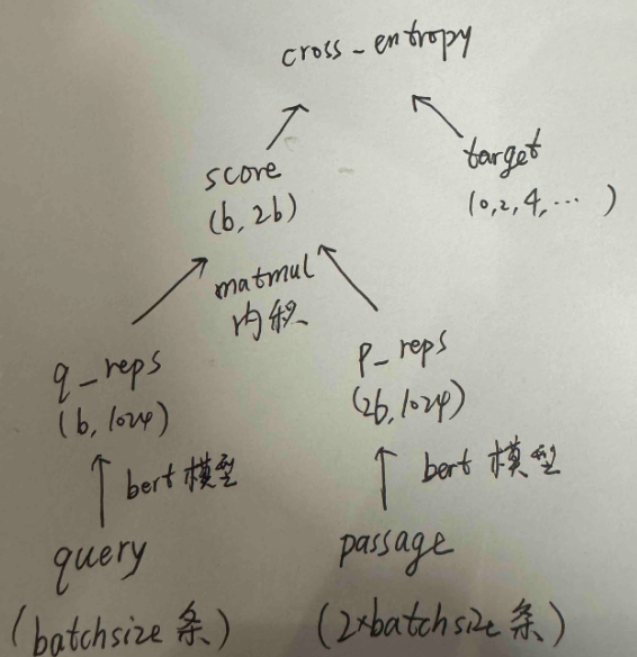 cross_entropy
score
(b, 2b)
target
(0,2,4,… )
matmul
内积
q_reps
(b, 1024)
p_reps
(2b, 1024)
bert 模型
bert 模型
query
passage
(batchsize 条)
(2×batchsize 条)